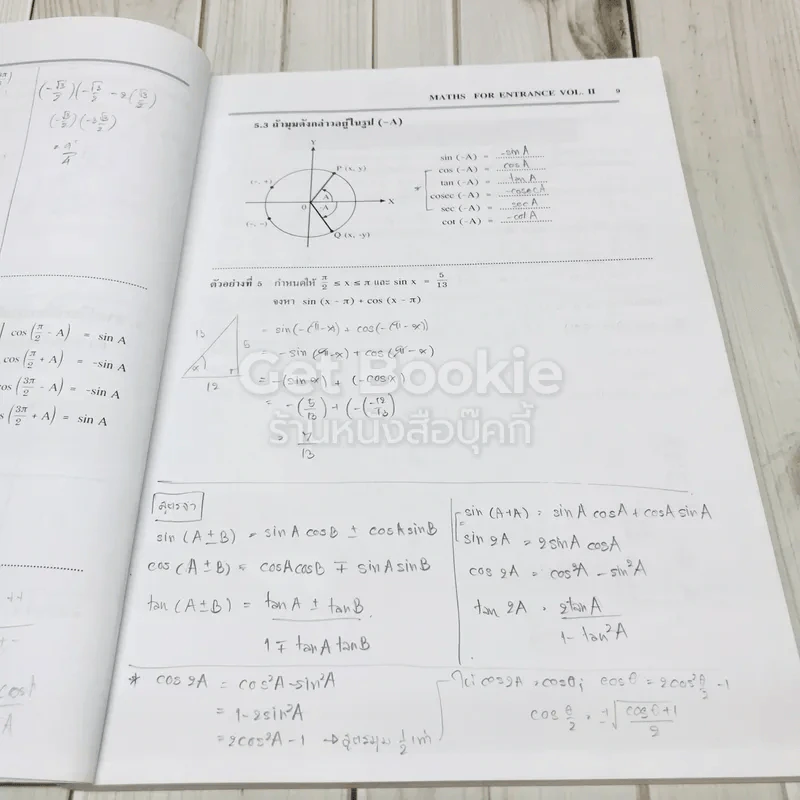 (-√3/2)(-√3/2 - 2(√3/2)
(-√3/2)(-3√3/2)
cos (π/2 - A) = sin A
cos (π/2 + A) = -sin A
cos (3π/2 - A) = -sin A
s (3π/2 + A) = sin A
MATHS FOR ENTRANCE VOL. II 9
5.3 ถ้ามุมดังกล่าวอยู่ในรูป (-A)
Y
P (x, y)
(-, +)
A
0
-A
X
(-, -)
Q (x, -y)
sin (-A) = -sin A
cos (-A) = cos A
tan (-A) = -tan A
cosec (-A) = -cosec A
sec (-A) = sec A
cot (-A) = -cot A
ตัวอย่างที่ 5 กำหนดให้ π/2 ≤ x ≤ π และ sin x = 5/13
จงหา sin (x - π) + cos (x - π)
13
5
x
12
= sin(-(π-x)) + cos(-(π-x))
= -sin(π-x) + cos(π-x)
= -(sin x) + (-cos x)
= -(5/13) + (-(-12/13))
= 7/13
Get Bookie
ร้านหนังสือบุ๊คกี้
สูตรจำ
sin (A ± B) = sin A cos B ± cos A sin B
cos (A ± B) = cos A cos B ∓ sin A sin B
tan (A ± B) = tan A ± tan B
1 ∓ tan A tan B
sin (A+A) = sin A cos A + cos A sin A
sin 2A = 2 sin A cos A
cos 2A = cos²A - sin²A
tan 2A = 2tan A
1 - tan²A
* cos 2A = cos²A - sin²A
= 1 - 2sin²A
= 2cos²A - 1 → สูตรมุม 1/2 เท่า
ให้ cos 2A = cos θ; cos θ = 2cos² θ/2 - 1
cos θ/2 = ±√(cos θ + 1)/2